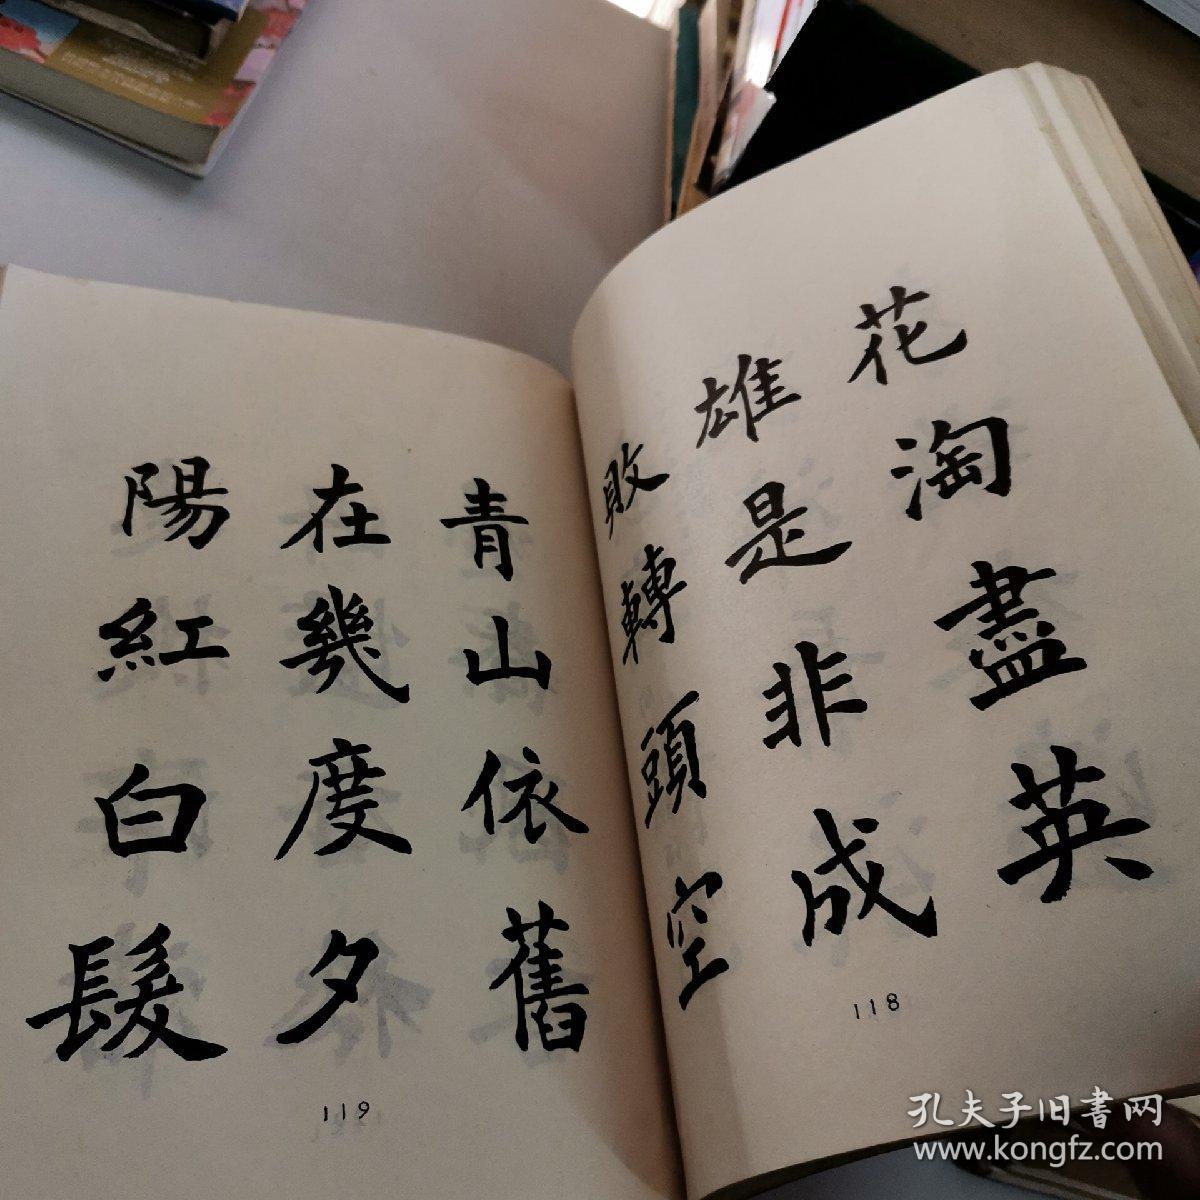 花淘盡英
雄是非成
敗轉頭空
118
青山依舊
在幾度夕
陽紅白髮
119
孔夫子旧书网
www.kongfz.com